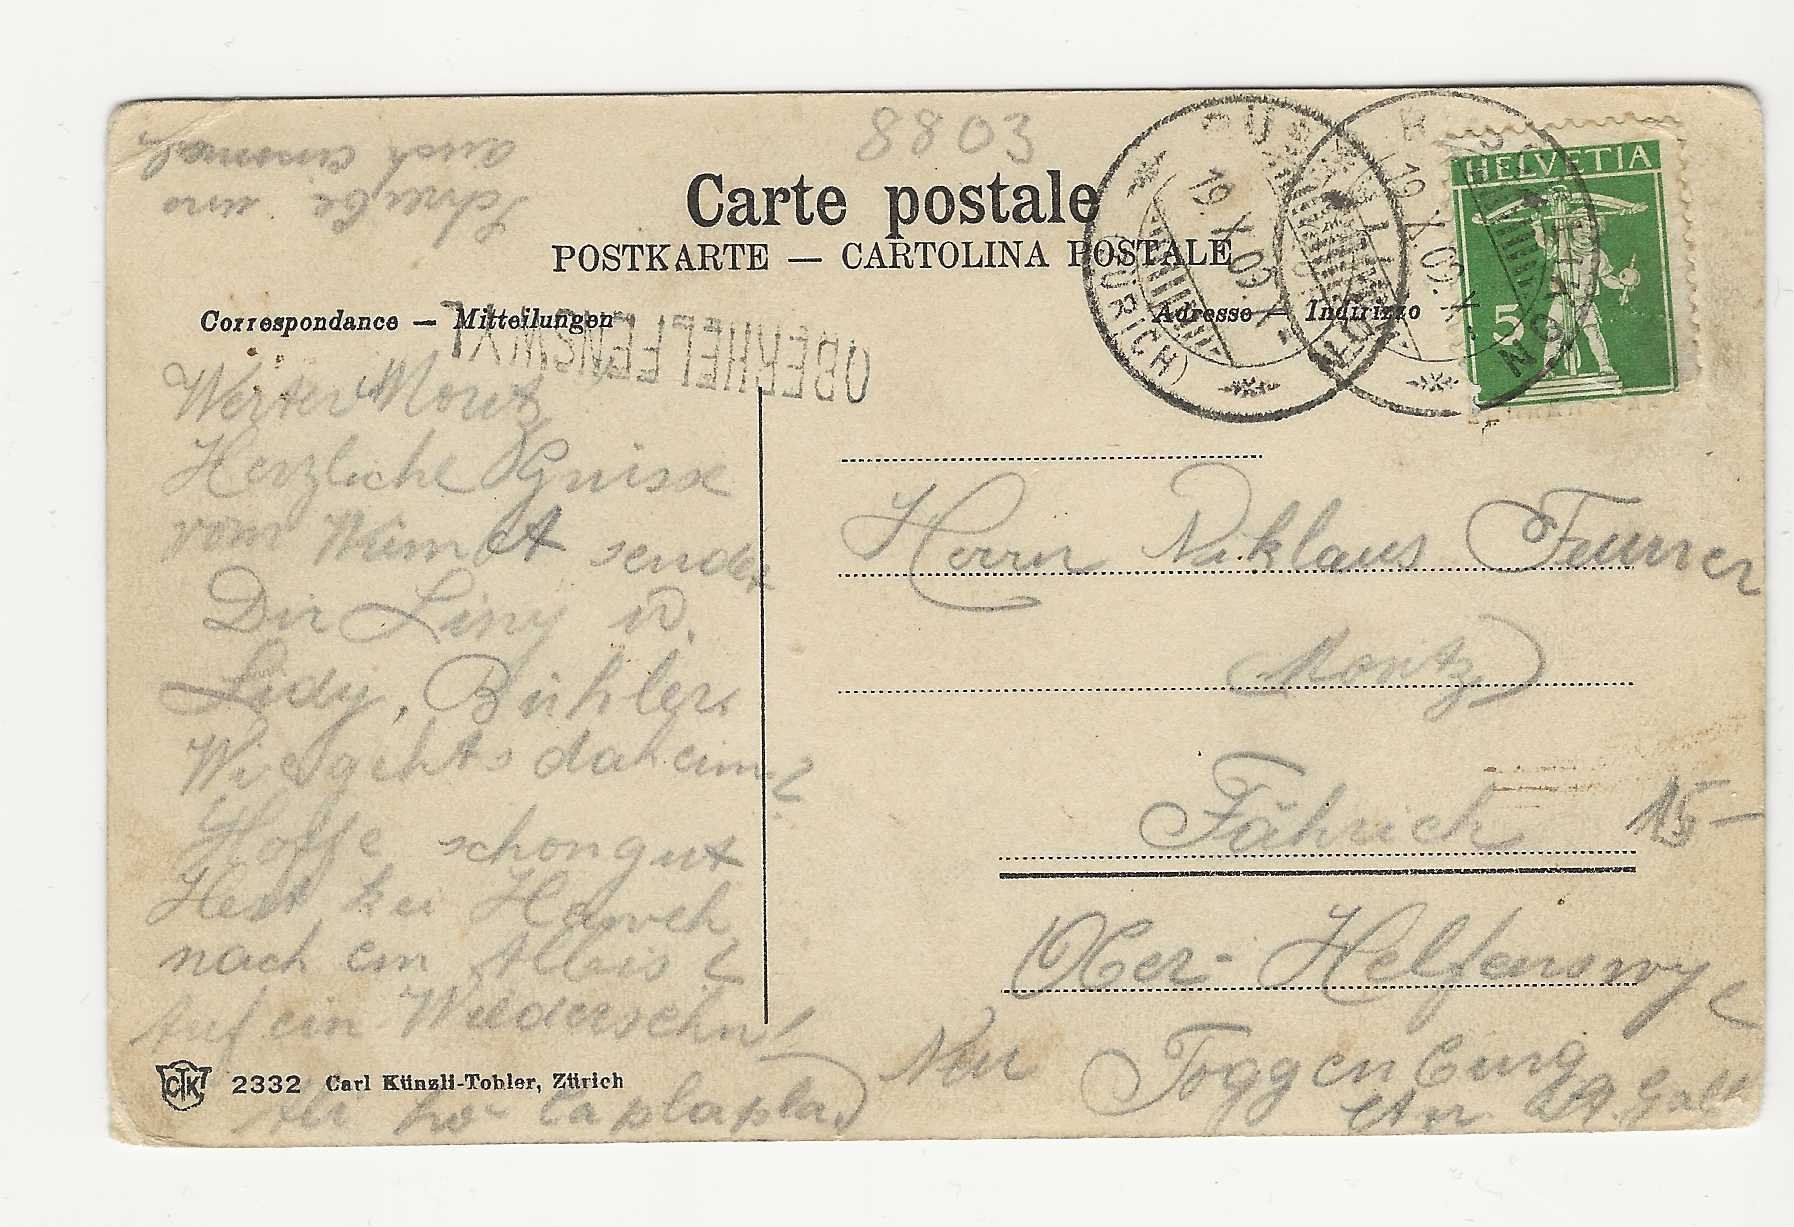 Schreibe uns
auch einmal.
8803
Carte postale
POSTKARTE — CARTOLINA POSTALE
Correspondance — Mitteilungen
Adresse — Indirizzo
OBERHELFENSWYL
RÜSCHLIKON
19.X.09.
(ZÜRICH)
19.X.09.
HELVETIA
5
Werter Moritz
Herzliche Grüsse
vom Wümet senden
Dir Liny u.
Lidy, Bühler.
Wie gehts daheim?
Hoffe schon gut
Hest kei
nach em
Auf ein Wiedersehn!
Herrn Niklaus Furrer
(Moritz)
Fähnrich
15-
Ober-Helfenswyl
Neu Toggenburg
Ct. St. Gall
CTK 2332 Carl Künzli-Tobler, Zürich